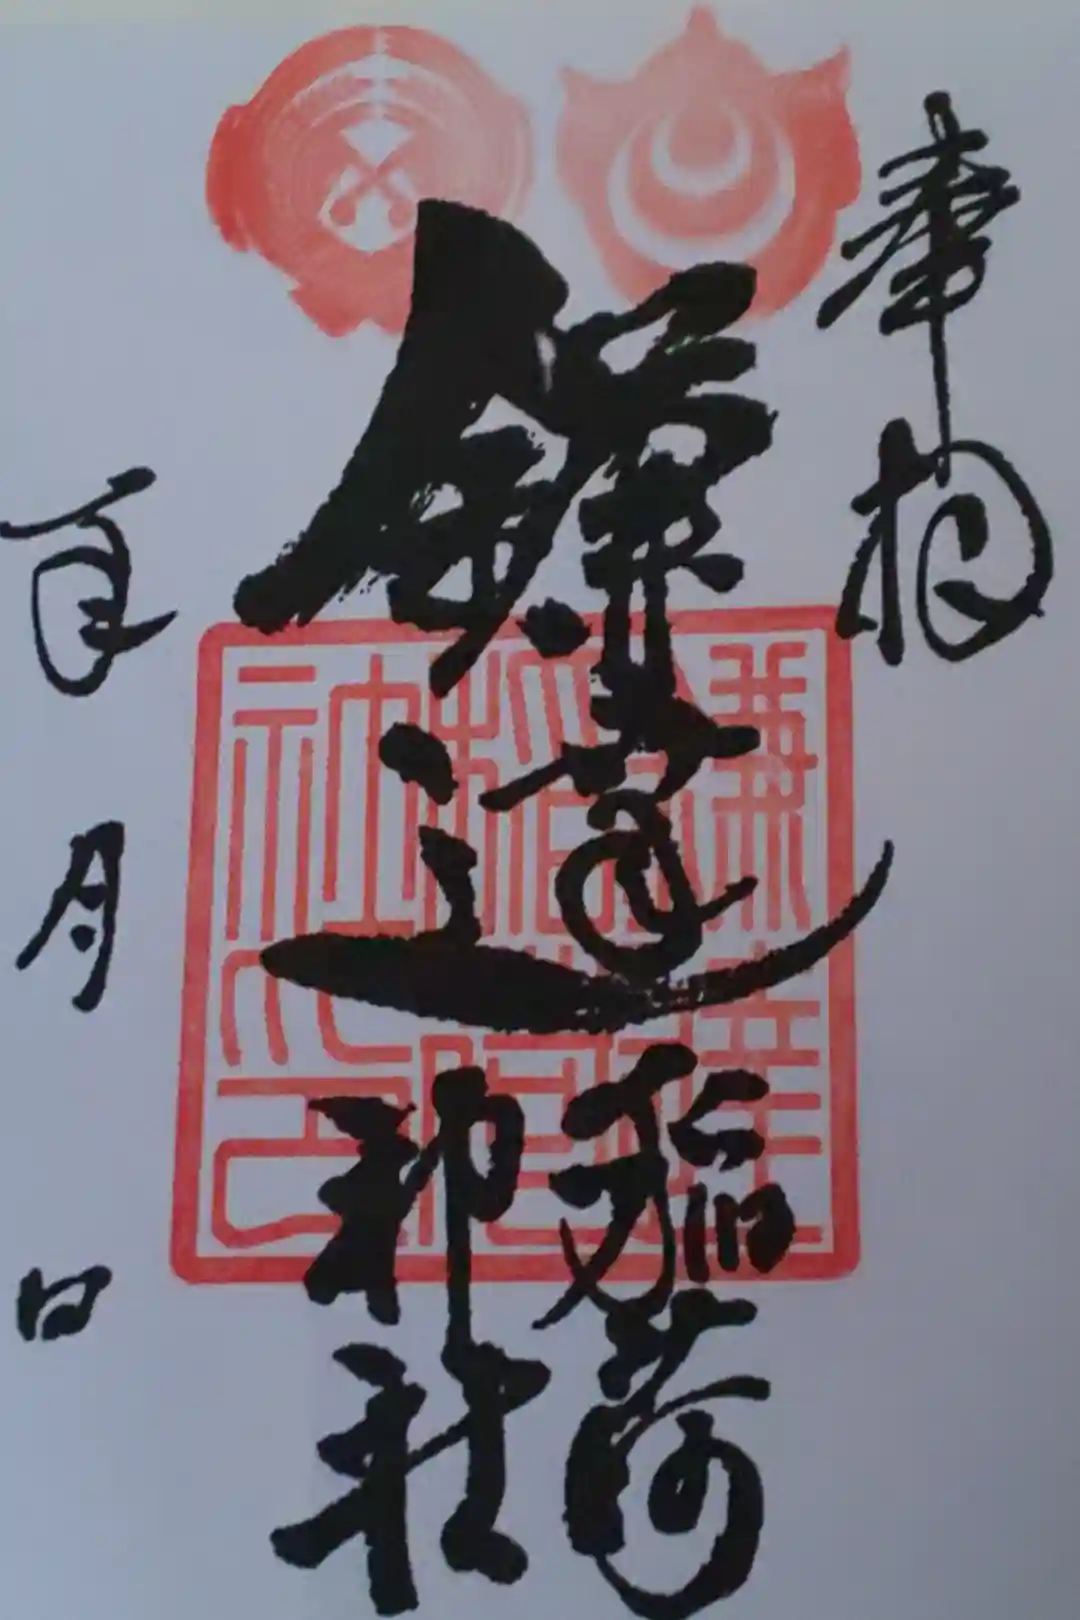 奉拝
鎌達
稲荷
神社
年 月 日
鎌達
稲荷
社之印